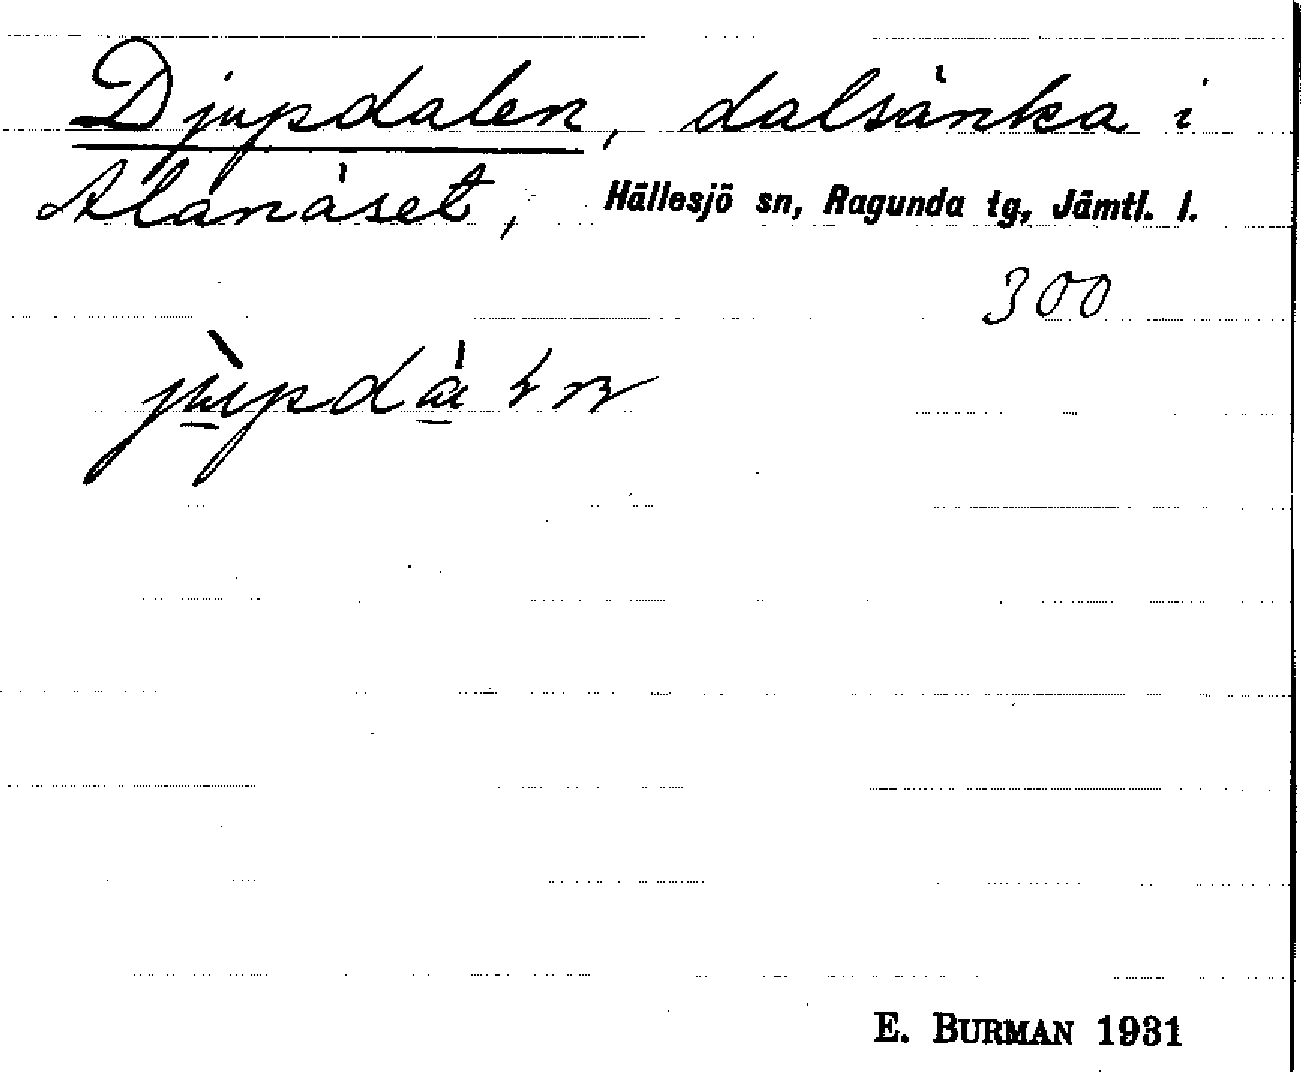 Djupdalen, dalsänka i
Alanäset, Hällesjö sn, Ragunda tg, Jämtl. l.
300
E. BURMAN 1931